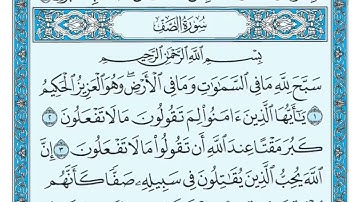 سُورَةُ الصَّفِّ
بِسْمِ اللَّهِ الرَّحْمَٰنِ الرَّحِيمِ
سَبَّحَ لِلَّهِ مَا فِي السَّمَاوَاتِ وَمَا فِي الْأَرْضِ ۖ وَهُوَ الْعَزِيزُ الْحَكِيمُ
۝١ يَا أَيُّهَا الَّذِينَ آمَنُوا لِمَ تَقُولُونَ مَا لَا تَفْعَلُونَ ۝٢
كَبُرَ مَقْتًا عِندَ اللَّهِ أَن تَقُولُوا مَا لَا تَفْعَلُونَ ۝٣ إِنَّ
اللَّهَ يُحِبُّ الَّذِينَ يُقَاتِلُونَ فِي سَبِيلِهِ صَفًّا كَأَنَّهُم